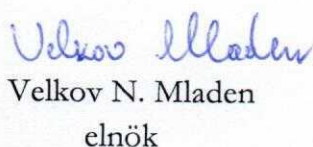 Velkov Mladen
Velkov N. Mladen
elnök